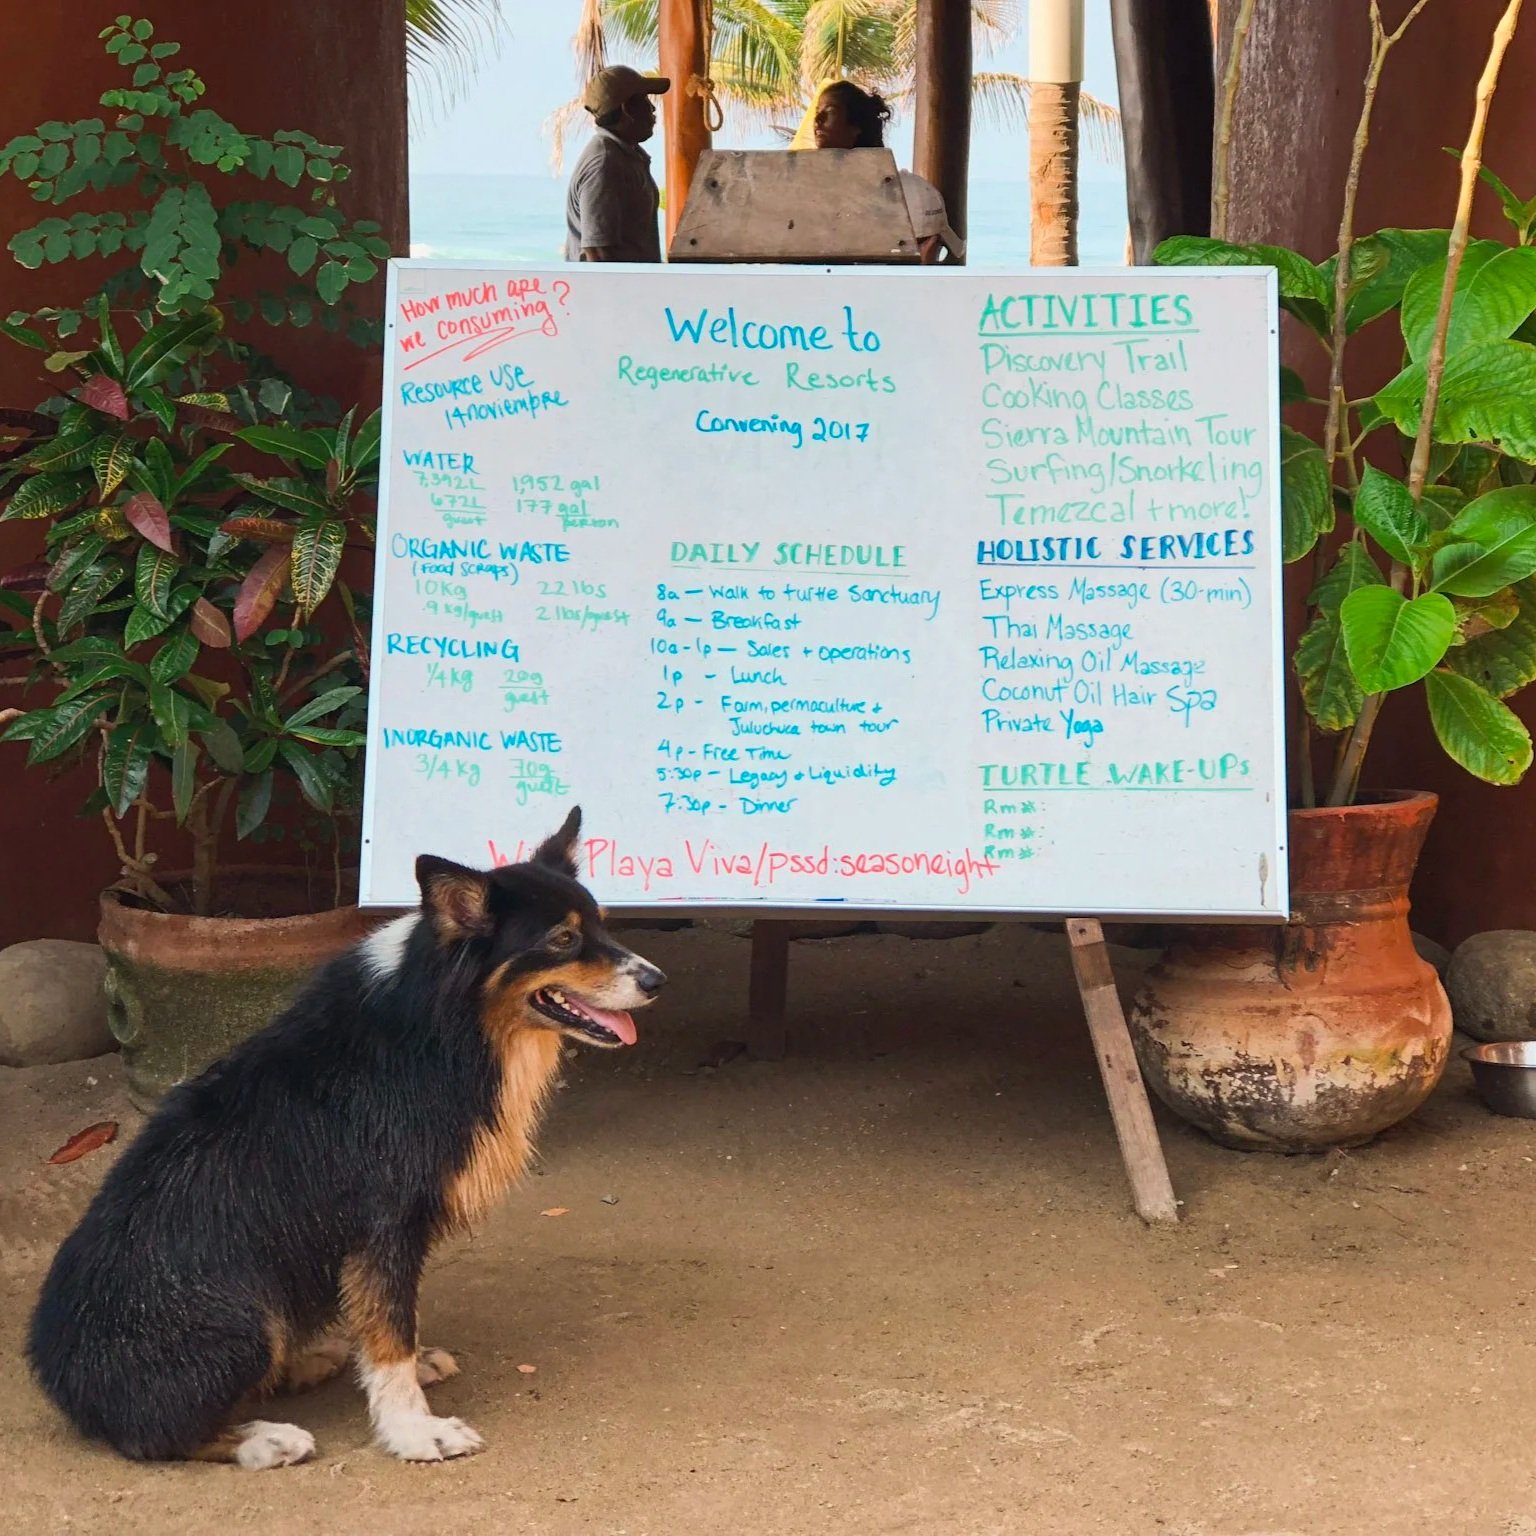 How much are
we consuming?
Resource Use
14 noviembre
WATER
7,392L 1,952 gal
672L 177 gal
guest person
ORGANIC WASTE
(food scraps)
10Kg 22 lbs
.9 kg/guest 2 lbs/guest
RECYCLING
1/4 kg 20g
guest
INORGANIC WASTE
3/4 kg 70g
guest
Welcome to
Regenerative Resorts
Convening 2017
DAILY SCHEDULE
8a — Walk to turtle Sanctuary
9a — Breakfast
10a - 1p — Sales + operations
1p - Lunch
2p - Farm, permaculture +
Juluchuca town tour
4p - Free Time
5:30p - Legacy + Liquidity
7:30p - Dinner
ACTIVITIES
Discovery Trail
Cooking Classes
Sierra Mountain Tour
Surfing/Snorkeling
Temezcal + more!
HOLISTIC SERVICES
Express Massage (30-min)
Thai Massage
Relaxing Oil Massage
Coconut Oil Hair Spa
Private Yoga
TURTLE WAKE-UPs
Rm #:
Rm #:
Rm #:
Playa Viva/pssd:seasoneight